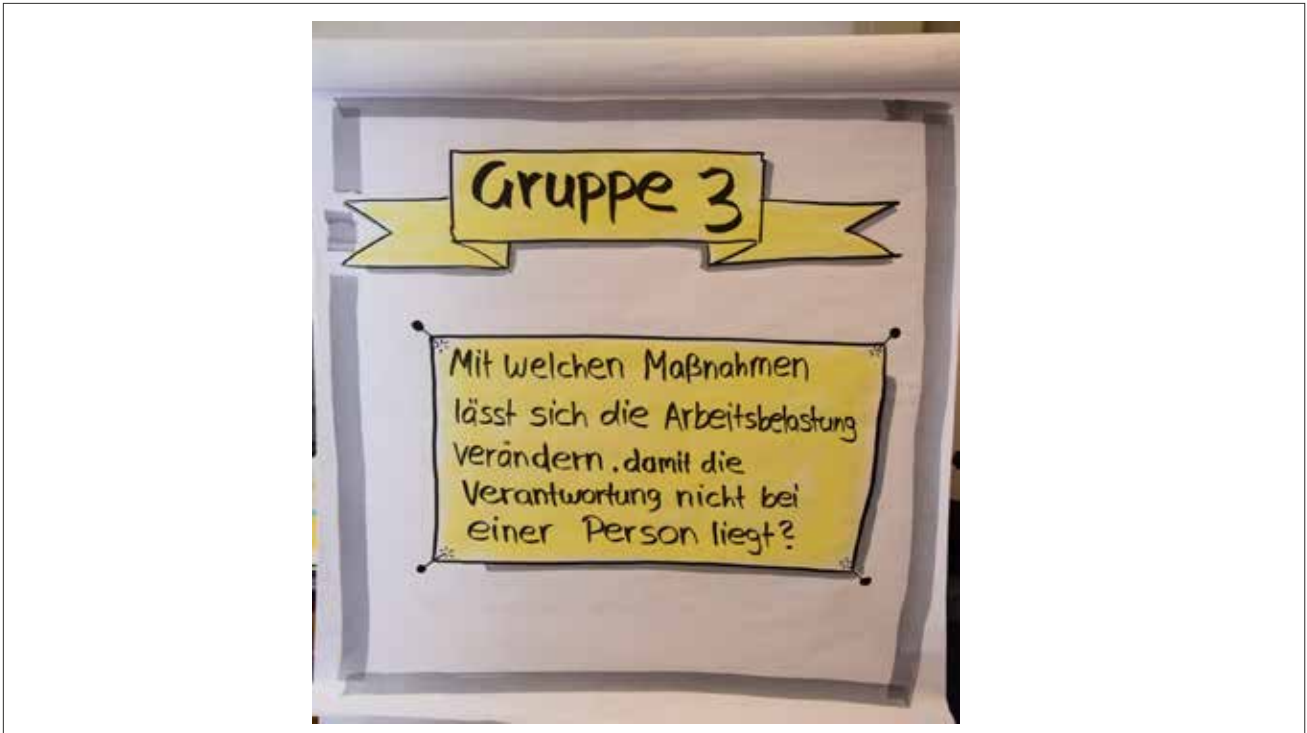 Gruppe 3
Mit welchen Maßnahmen
lässt sich die Arbeitsbelastung
verändern. damit die
Verantwortung nicht bei
einer Person liegt?